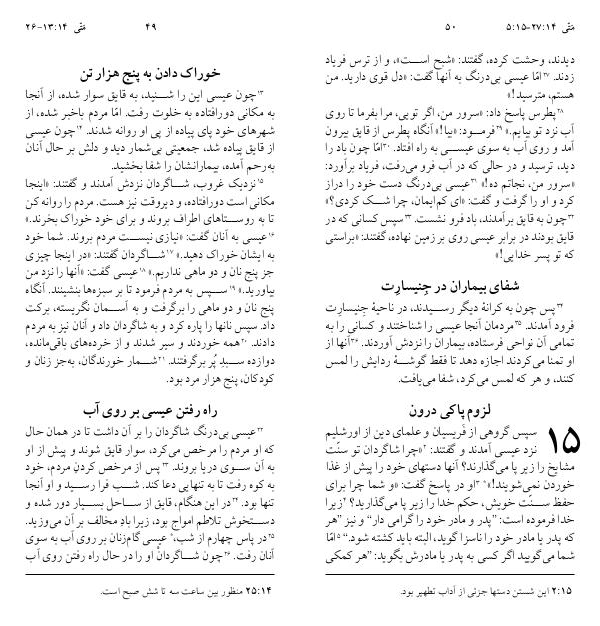 متی ۱۳:۱۴-۲۶
۴۹
خوراک دادن به پنج هزار تن
۱۳چون عیسی این را شنید، به قایق سوار شده، از آنجا
به مکانی دورافتاده به خلوت رفت. امّا مردم باخبر شده، از
شهرهای خود پای پیاده از پی او روانه شدند. ۱۴چون عیسی
از قایق پیاده شد، جمعیتی بی‌شمار دید و دلش بر حال آنان
به‌رحم آمده، بیمارانشان را شفا بخشید.
۱۵نزدیک غروب، شاگردان نزدش آمدند و گفتند: «اینجا
مکانی است دورافتاده، و دیروقت نیز هست. مردم را روانه کن
تا به روستاهای اطراف بروند و برای خود خوراک بخرند.»
۱۶عیسی به آنان گفت: «نیازی نیست مردم بروند. شما خود
به ایشان خوراک دهید.» ۱۷شاگردان گفتند: «در اینجا چیزی
جز پنج نان و دو ماهی نداریم.» ۱۸عیسی گفت: «آنها را نزد من
بیاورید.» ۱۹سپس به مردم فرمود تا بر سبزه‌ها بنشینند. آنگاه
پنج نان و دو ماهی را برگرفت و به آسمان نگریسته، برکت
داد. سپس نانها را پاره کرد و به شاگردان داد و آنان نیز به مردم
دادند. ۲۰همه خوردند و سیر شدند و از خرده‌های باقی‌مانده،
دوازده سبدِ پُر برگرفتند. ۲۱شمار خورندگان، به‌جز زنان و
کودکان، پنج هزار مرد بود.
راه رفتن عیسی بر روی آب
۲۲عیسی بی‌درنگ شاگردان را بر آن داشت تا در همان حال
که او مردم را مرخص می‌کرد، سوار قایق شوند و پیش از او
به آن سوی دریا بروند. ۲۳پس از مرخص کردنِ مردم، خود
به کوه رفت تا به تنهایی دعا کند. شب فرا رسید و او آنجا
تنها بود. ۲۴در این هنگام، قایق از ساحل بسیار دور شده و
دستخوش تلاطم امواج بود، زیرا بادِ مخالف بر آن می‌وزید.
۲۵در پاس چهارم از شب، عیسی گام‌زنان بر روی آب به سوی
آنان رفت. ۲۶چون شاگردانْ او را در حال راه رفتن روی آب
۲۵:۱۴ منظور بین ساعت سه تا شش صبح است.
متی ۲۷:۱۴-۵:۱۵
۵۰
دیدند، وحشت کرده، گفتند: «شبح است»، و از ترس فریاد
زدند. ۲۷امّا عیسی بی‌درنگ به آنها گفت: «دل قوی دارید. من
هستم، مترسید!»
۲۸پطرس پاسخ داد: «سرور من، اگر تویی، مرا بفرما تا روی
آب نزد تو بیایم.» ۲۹فرمود: «بیا!» آنگاه پطرس از قایق بیرون
آمد و روی آب به سوی عیسی به راه افتاد. ۳۰امّا چون باد را
دید، ترسید و در حالی که در آب فرو می‌رفت، فریاد برآورد:
«سرور من، نجاتم ده!» ۳۱عیسی بی‌درنگ دست خود را دراز
کرد و او را گرفت و گفت: «ای کم‌ایمان، چرا شک کردی؟»
۳۲چون به قایق برآمدند، باد فرو نشست. ۳۳سپس کسانی که در
قایق بودند در برابر عیسی روی بر زمین نهاده، گفتند: «براستی
که تو پسر خدایی!»
شفای بیماران در جِنیسارِت
۳۴پس چون به کرانهٔ دیگر رسیدند، در ناحیهٔ جِنیسارِت
فرود آمدند. ۳۵مردمان آنجا عیسی را شناختند و کسانی را به
تمامی آن نواحی فرستاده، بیماران را نزدش آوردند. ۳۶آنها از
او تمنا می‌کردند اجازه دهد تا فقط گوشهٔ ردایش را لمس
کنند، و هر که لمس می‌کرد، شفا می‌یافت.
لزوم پاکی درون
۱۵ سپس گروهی از فَریسیان و علمای دین از اورشلیم
نزد عیسی آمدند و گفتند: ۲«چرا شاگردان تو سنّت
مشایخ را زیر پا می‌گذارند؟ آنها دستهای خود را پیش از غذا
خوردن نمی‌شویند!» ۳او در پاسخ گفت: «و شما چرا برای
حفظ سنّت خویش، حکم خدا را زیر پا می‌گذارید؟ ۴زیرا
خدا فرموده است: ”پدر و مادر خود را گرامی دار“ و نیز ”هر
که پدر یا مادر خود را ناسزا گوید، البته باید کشته شود.“ ۵امّا
شما می‌گویید اگر کسی به پدر یا مادرش بگوید: ”هر کمکی
۲:۱۵ این شستن دستها جزئی از آداب تطهیر بود.